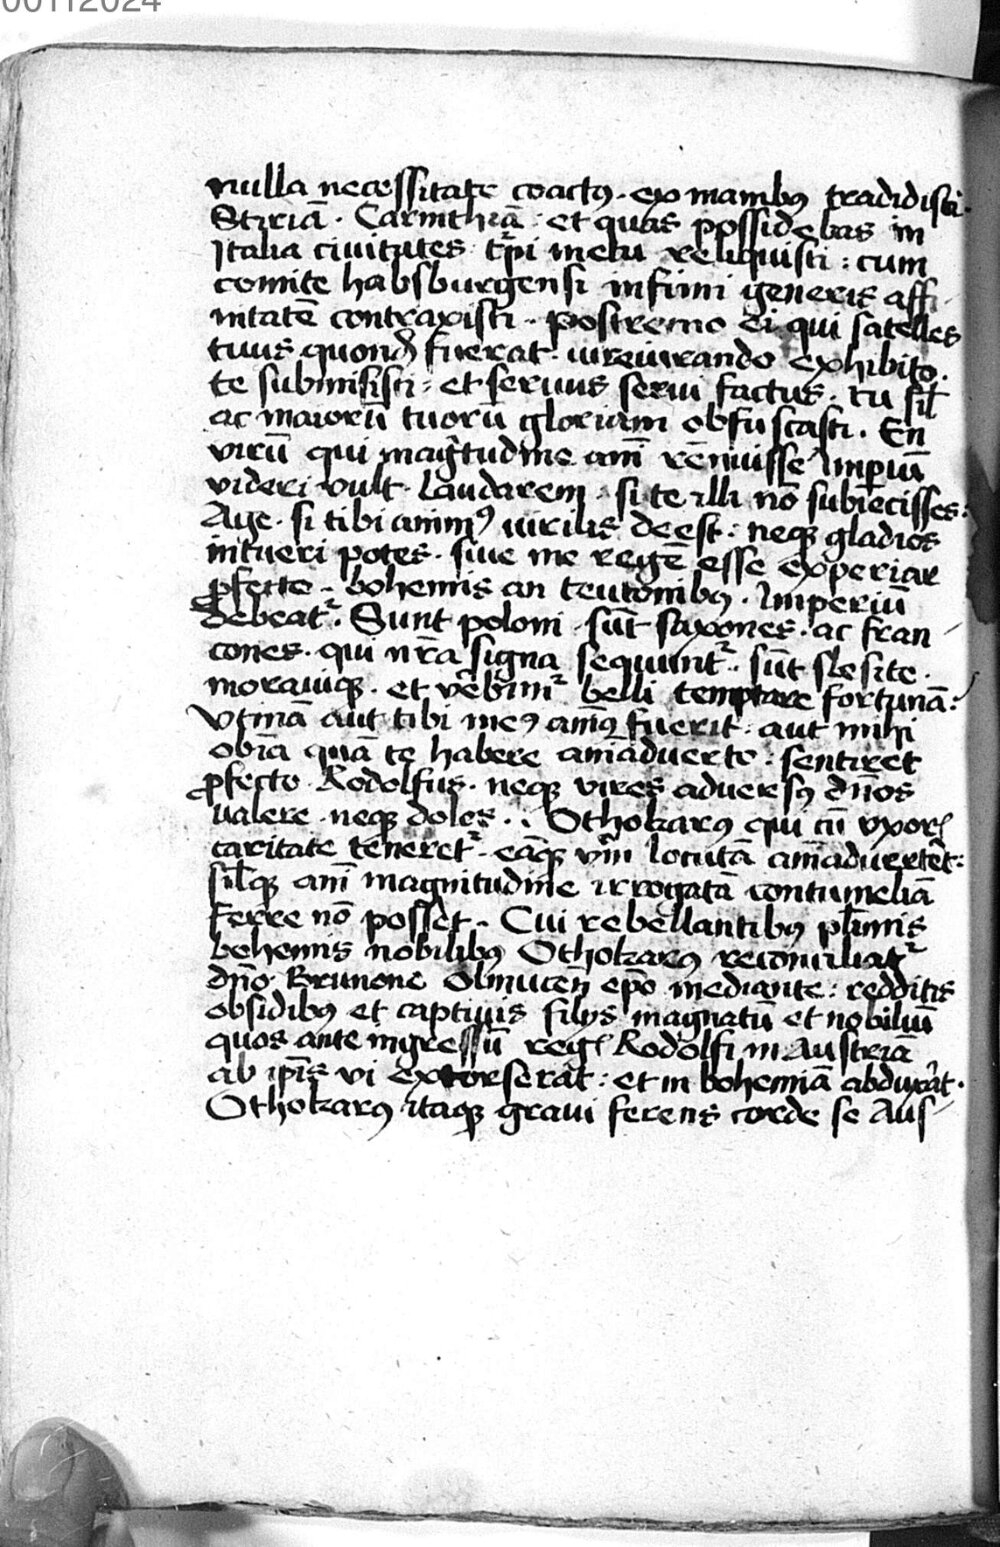 00112024
nulla necessitate coactꝯ · ex manibꝯ tradidisti ·
Stiriā · Carinthiā · et quas possidebas in
Italia civitates · tꝑi metu reliquisti : cum
comite habsburgensi infimi generis affi-
nitatē contraxisti · postremo ei qui satelles
tuus quondā fuerat · iureiurando exhibito ·
te submisisti : et servus servi factus · tu sil̄
ac maiorū tuorū gloriam obfuscasti · En
virū qui magͣtudine amī renuisse Imperiū
videri vult · Laudarem · si te illi nō subiecisses :
Age · si tibi animꝯ virilis deest : neqꝫ gladios
intueri potes · sine me regē esse experiar
ꝓfecto · bohemis an teutonibꝯ · Imperiū
debeat᷑ · Sunt poloni · sūt saxones · ac fran-
cones · qui nr̄a signa sequunt᷑ · sūt slesite ·
moraviqꝫ · et vērbimī belli temptare fortunā :
Vtinā aut tibi meꝯ amꝯ fuerit : aut mihi
obiā quā te habere amāadverto : sentiret
ꝓfecto · Rodolfus · neqꝫ vires adversꝯ dn̄os
valere · neqꝫ doles · Othokarꝯ qui cū vxorͥ
caritate teneret᷑ · eāqꝫ vm̄ locutā amāadvertēt :
sil̄qꝫ amī magnitudine irrogatā contumeliā
ferre nō posset · Cui rebellantibꝯ pl̄imis
behemis nobilibꝯ Othokarꝯ reconciliat᷑
dn̄o Brunone Olmucen̄ ep̄o mediante : redditis
obsidibꝯ et captivis filijs magnatū et nobiliū
quos ante ingressū regͥ Rodolfi in Austriā
ab ip̄is vi extorserāt : et in bohemiā abduxāt ·
Othokarꝯ itaqꝫ gravi ferens corde se Aus-